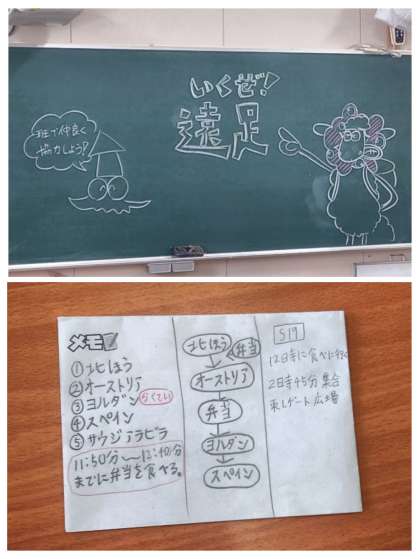 いくぜ！
遠足
班で仲良く
協力しよう！
メモ
①北ほう
②オーストリア
③ヨルダン
④スペイン
⑤サウジアラビラ
11:50分〜12:10分
までに弁当を食べる。
北ほう
弁当
オーストリア
弁当
ヨルダン
スペイン
S19
12日寺に食べに行く
2日寺45分 集合
東しゲート広場